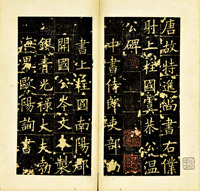 唐故特進尚書右僕
射上柱國虞恭公溫
公碑
中書侍郎 部尚
書上柱國南陽郡
開國公岑文本製
銀青光祿大夫勃
海男歐陽詢書